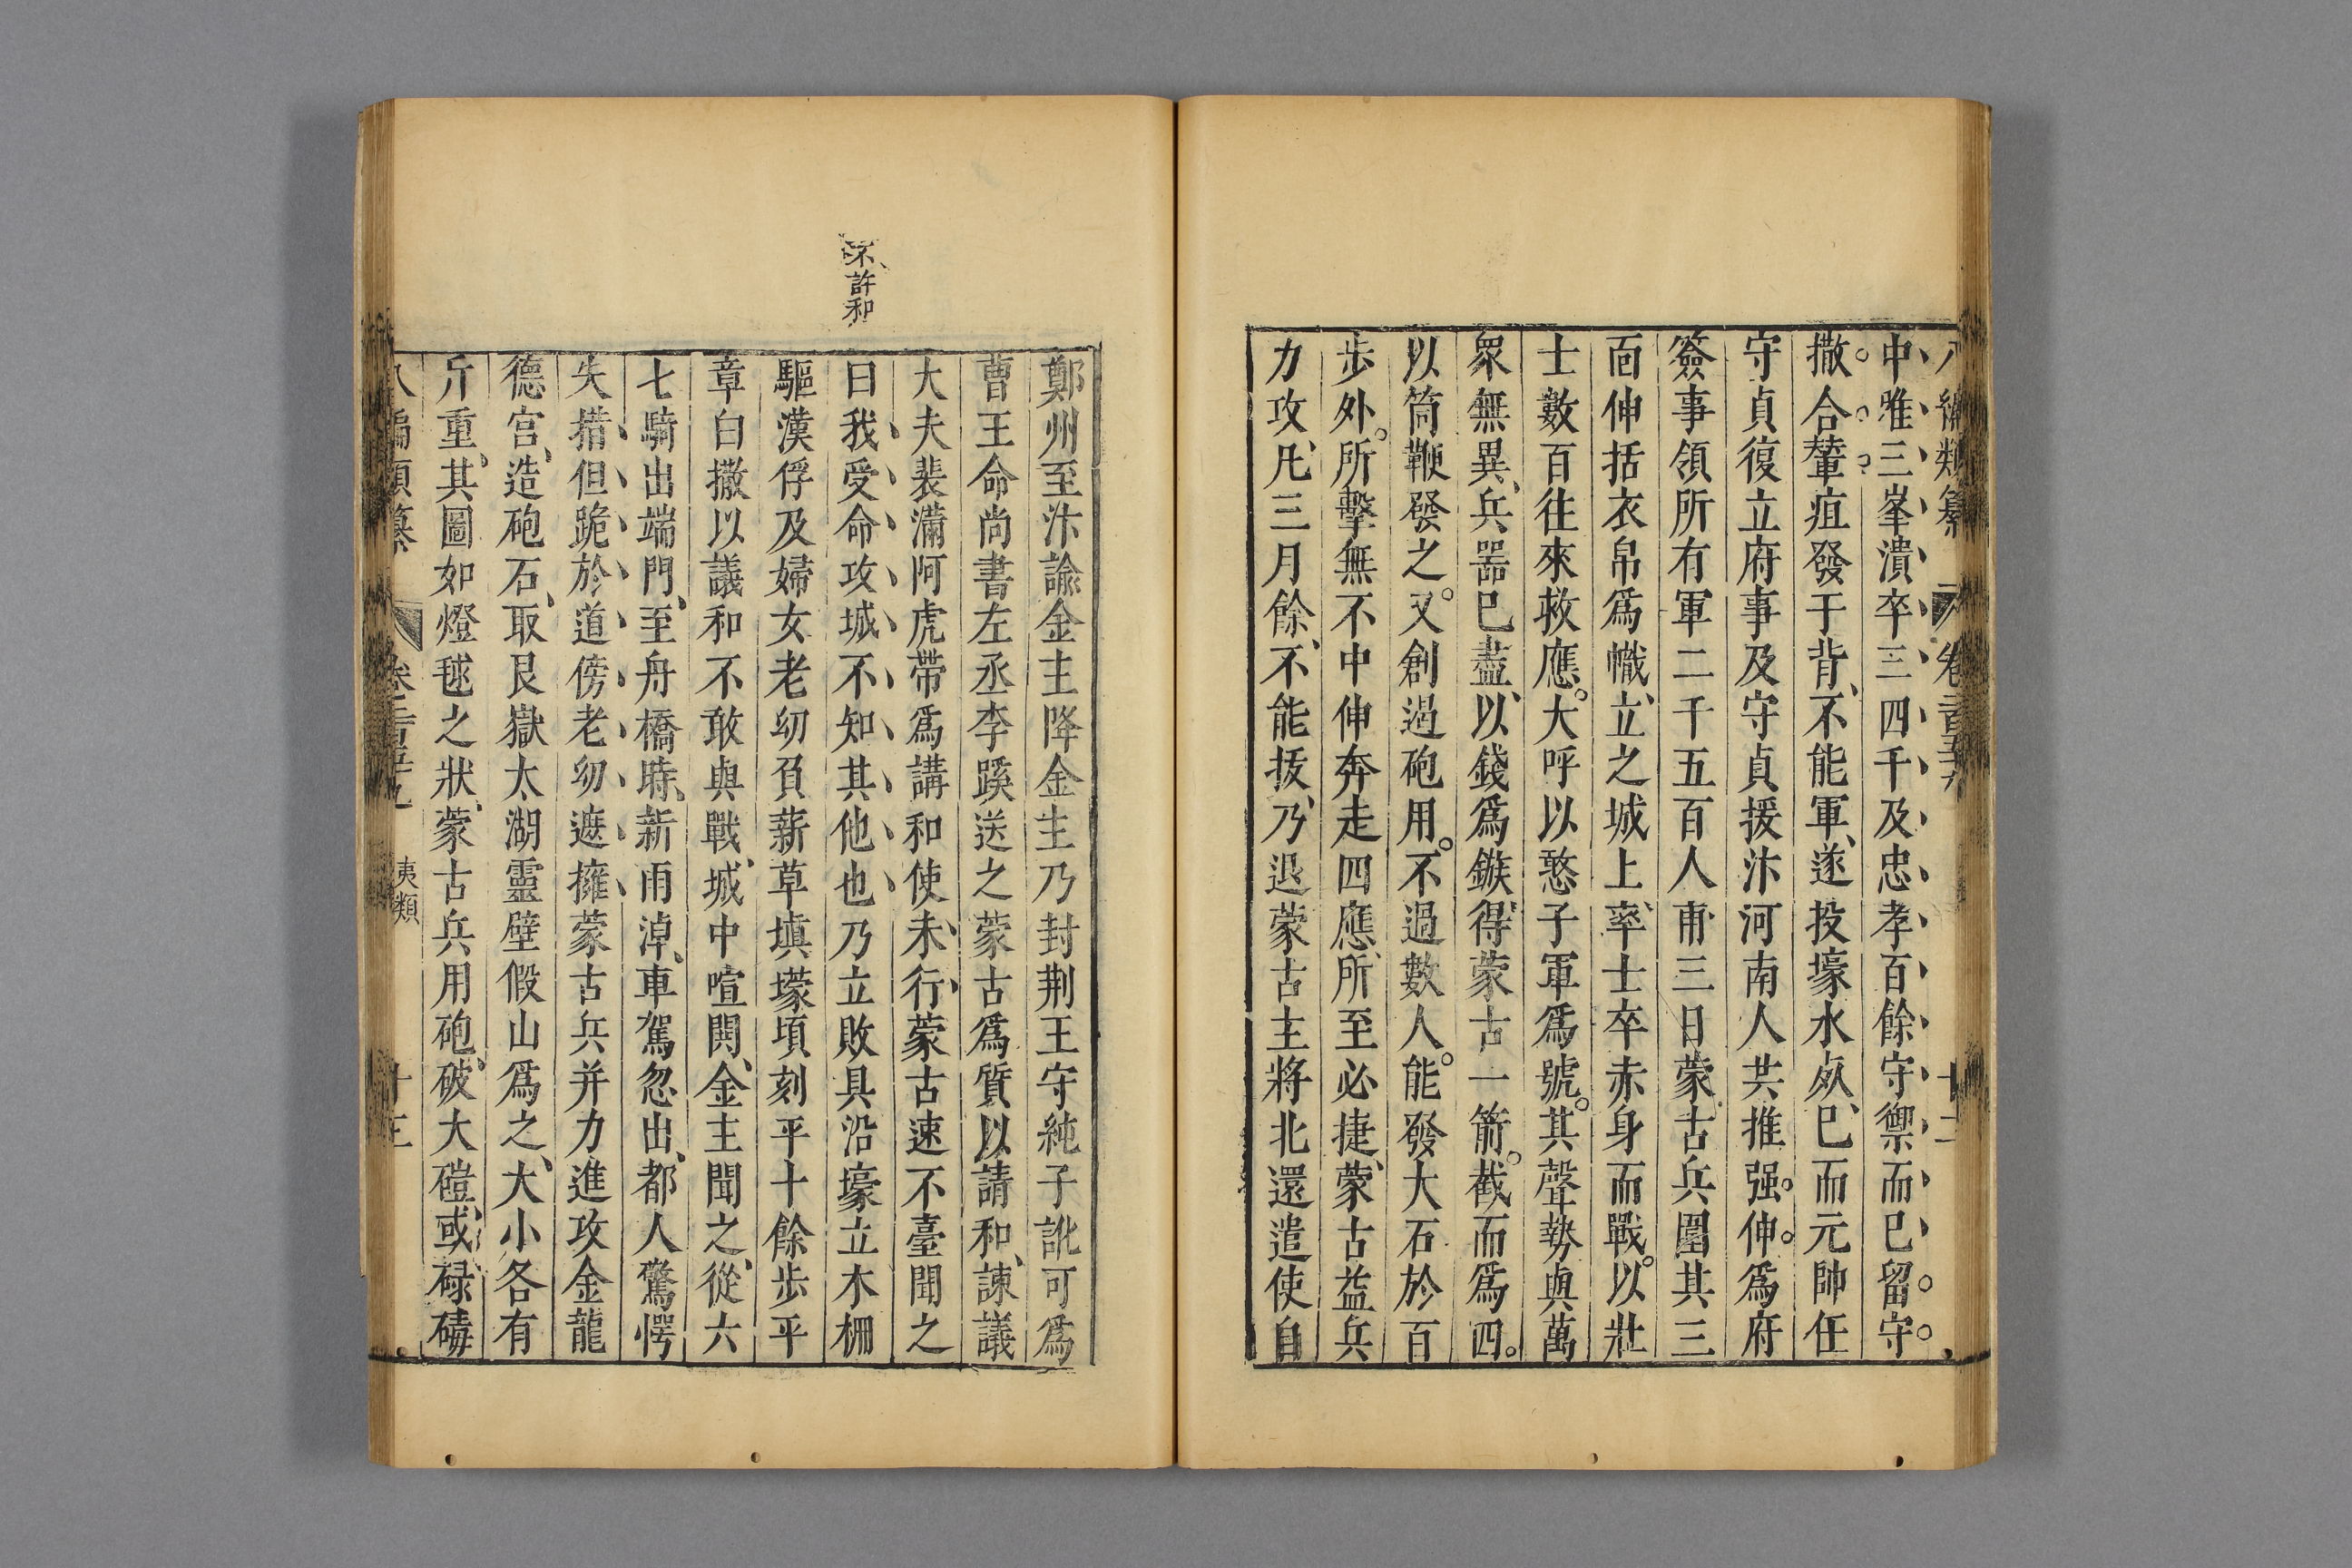 中雅三峯潰卒三四千及忠孝百餘守禦而已留守
撒合輦疽發于背不能軍遂投壕水死已而元帥任
守貞復立府事及守貞援汴河南人共推强伸為府
簽事領所有軍二千五百人甫三日蒙古兵圍其三
面伸括衣帛爲幟立之城上率士卒赤身而戰以壯
士數百往來救應大呼以憨子軍爲號其聲勢與萬
衆無異兵噐已盡以錢爲鏃得蒙古一箭截而爲四
以筒鞭發之又創過砲用不過數人能發大石於百
歩外所擊無不中伸奔走四應所至必捷蒙古益兵
力攻凡三月餘不能拔乃退蒙古主將北還遣使自
鄭州至汴諭金主降金主乃封荆王守純子訛可爲
曹王命尚書左丞李蹊送之蒙古爲質以請和諫議
大夫裴滿阿虎帶爲講和使未行蒙古速不臺聞之
曰我受命攻城不知其他也乃立敗具沿壕立木栅
驅漢俘及婦女老幼負薪草塡壕頃刻平十餘歩平
章白撒以議和不敢與戰城中喧鬨金主聞之從六
七騎出端門至舟橋時新雨淖車駕忽出都人驚愕
失措但跪於道傍老幼遮擁蒙古兵并力進攻金龍
德宫造砲石取艮嶽太湖靈壁假山爲之大小各有
斤重其圖如燈毬之狀蒙古兵用砲破大磑或碌碡
不許和
夷類
十三